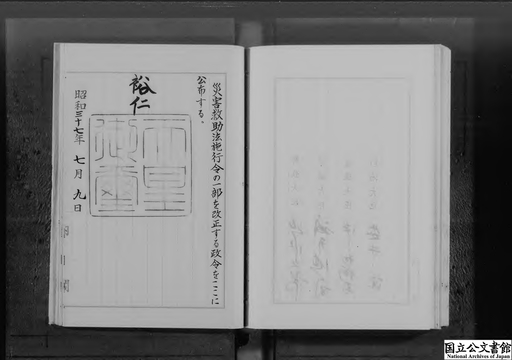 災害救助法施行令の一部を改正する政令をここに
公布する。
裕仁
天皇御璽
昭和三十七年 七月 九日
国立公文書館
National Archives of Japan